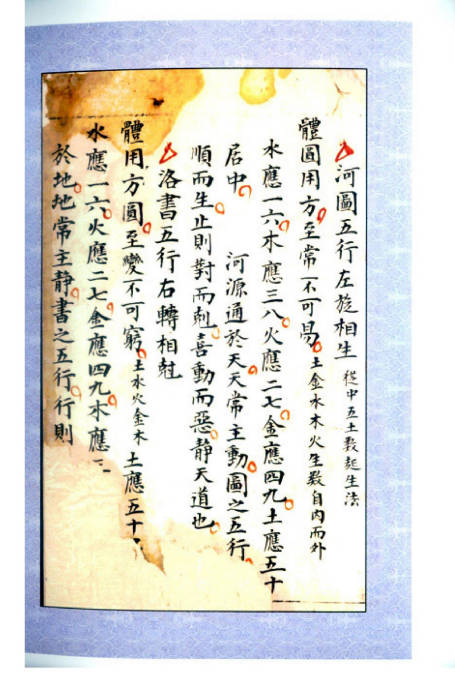 河圖五行左旋相生 從中五土數起生法
體圓用方至常不可易 土金水木火生數自內而外
水應一六木應三八火應二七金應四九土應五十
居中 河源通於天天常主動圖之五行
順而生止則對而剋喜動而惡靜天道也
洛書五行右轉相尅
體用方圓至變不可窮 土水火金木 土應五十
水應一六火應二七金應四九木應三
於地地常主靜書之五行行則